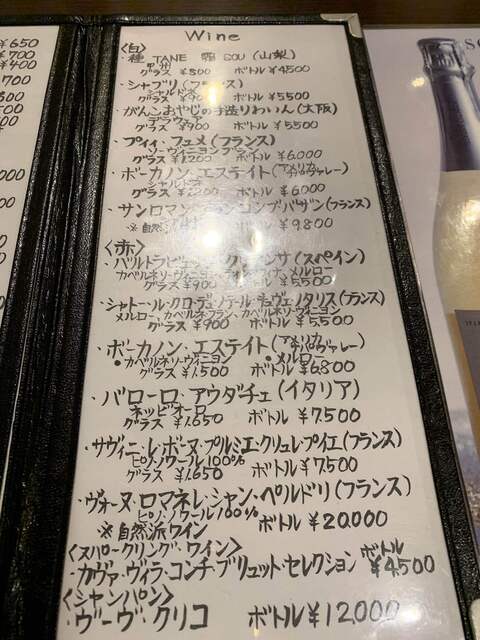 ¥650
¥700
¥400
¥700
Wine
<白>
・種 TANE 甲州 SOU (山梨)
グラス ¥800 ボトル ¥4500
・シャブリ(フランス)
シャルドネ
グラス ボトル ¥5500
・がんこおやじの手造りわいん(大阪)
デラウェア
グラス ¥900 ボトル ¥5500
・プイィ・フュメ(フランス)
ソーヴィニヨンブラン
グラス ¥1200 ボトル ¥6.000
・ボーカノン・エステイト(アメリカ ナパヴァレー)
シャルドネ
グラス ¥1200 ボトル ¥6.000
・サンロマン (フランス)
※自然派 ¥9.800
<赤>
・バルドラビュー (スペイン)
カベルネソーヴィニヨン メルロー
グラス ボトル ¥5.500
・シャトール・クロ・デュ・ノテール・キュヴェ・ノタリス(フランス)
メルロー、カベルネフラン、カベルネソーヴィニヨン
グラス ¥900 ボトル ¥5,500
・ボーカノン・エステイト(アメリカ ナパヴァレー)
・カベルネソーヴィニヨン ・メルロー
グラス ¥1.500 ボトル ¥6.800
・バローロ・アウダチェ(イタリア)
ネッビオーロ
グラス ¥1.650 ボトル ¥7.500
・サヴィニ・レ・ボーヌ・プルミエ・クリュ・レ・プイエ(フランス)
ピノ・ノワール100%
グラス ¥1.650 ボトル ¥7.500
・ヴォーヌ・ロマネ・レ・シャン・ペルドリ(フランス)
ピノ・ノワール100%
※自然派ワイン ボトル ¥20.000
<スパークリング・ワイン>
・カヴァ・ヴィラ・コンチ・ブリュット・セレクション ボトル ¥4,500
<シャンパン>
・ヴーヴ・クリコ ボトル ¥12.000